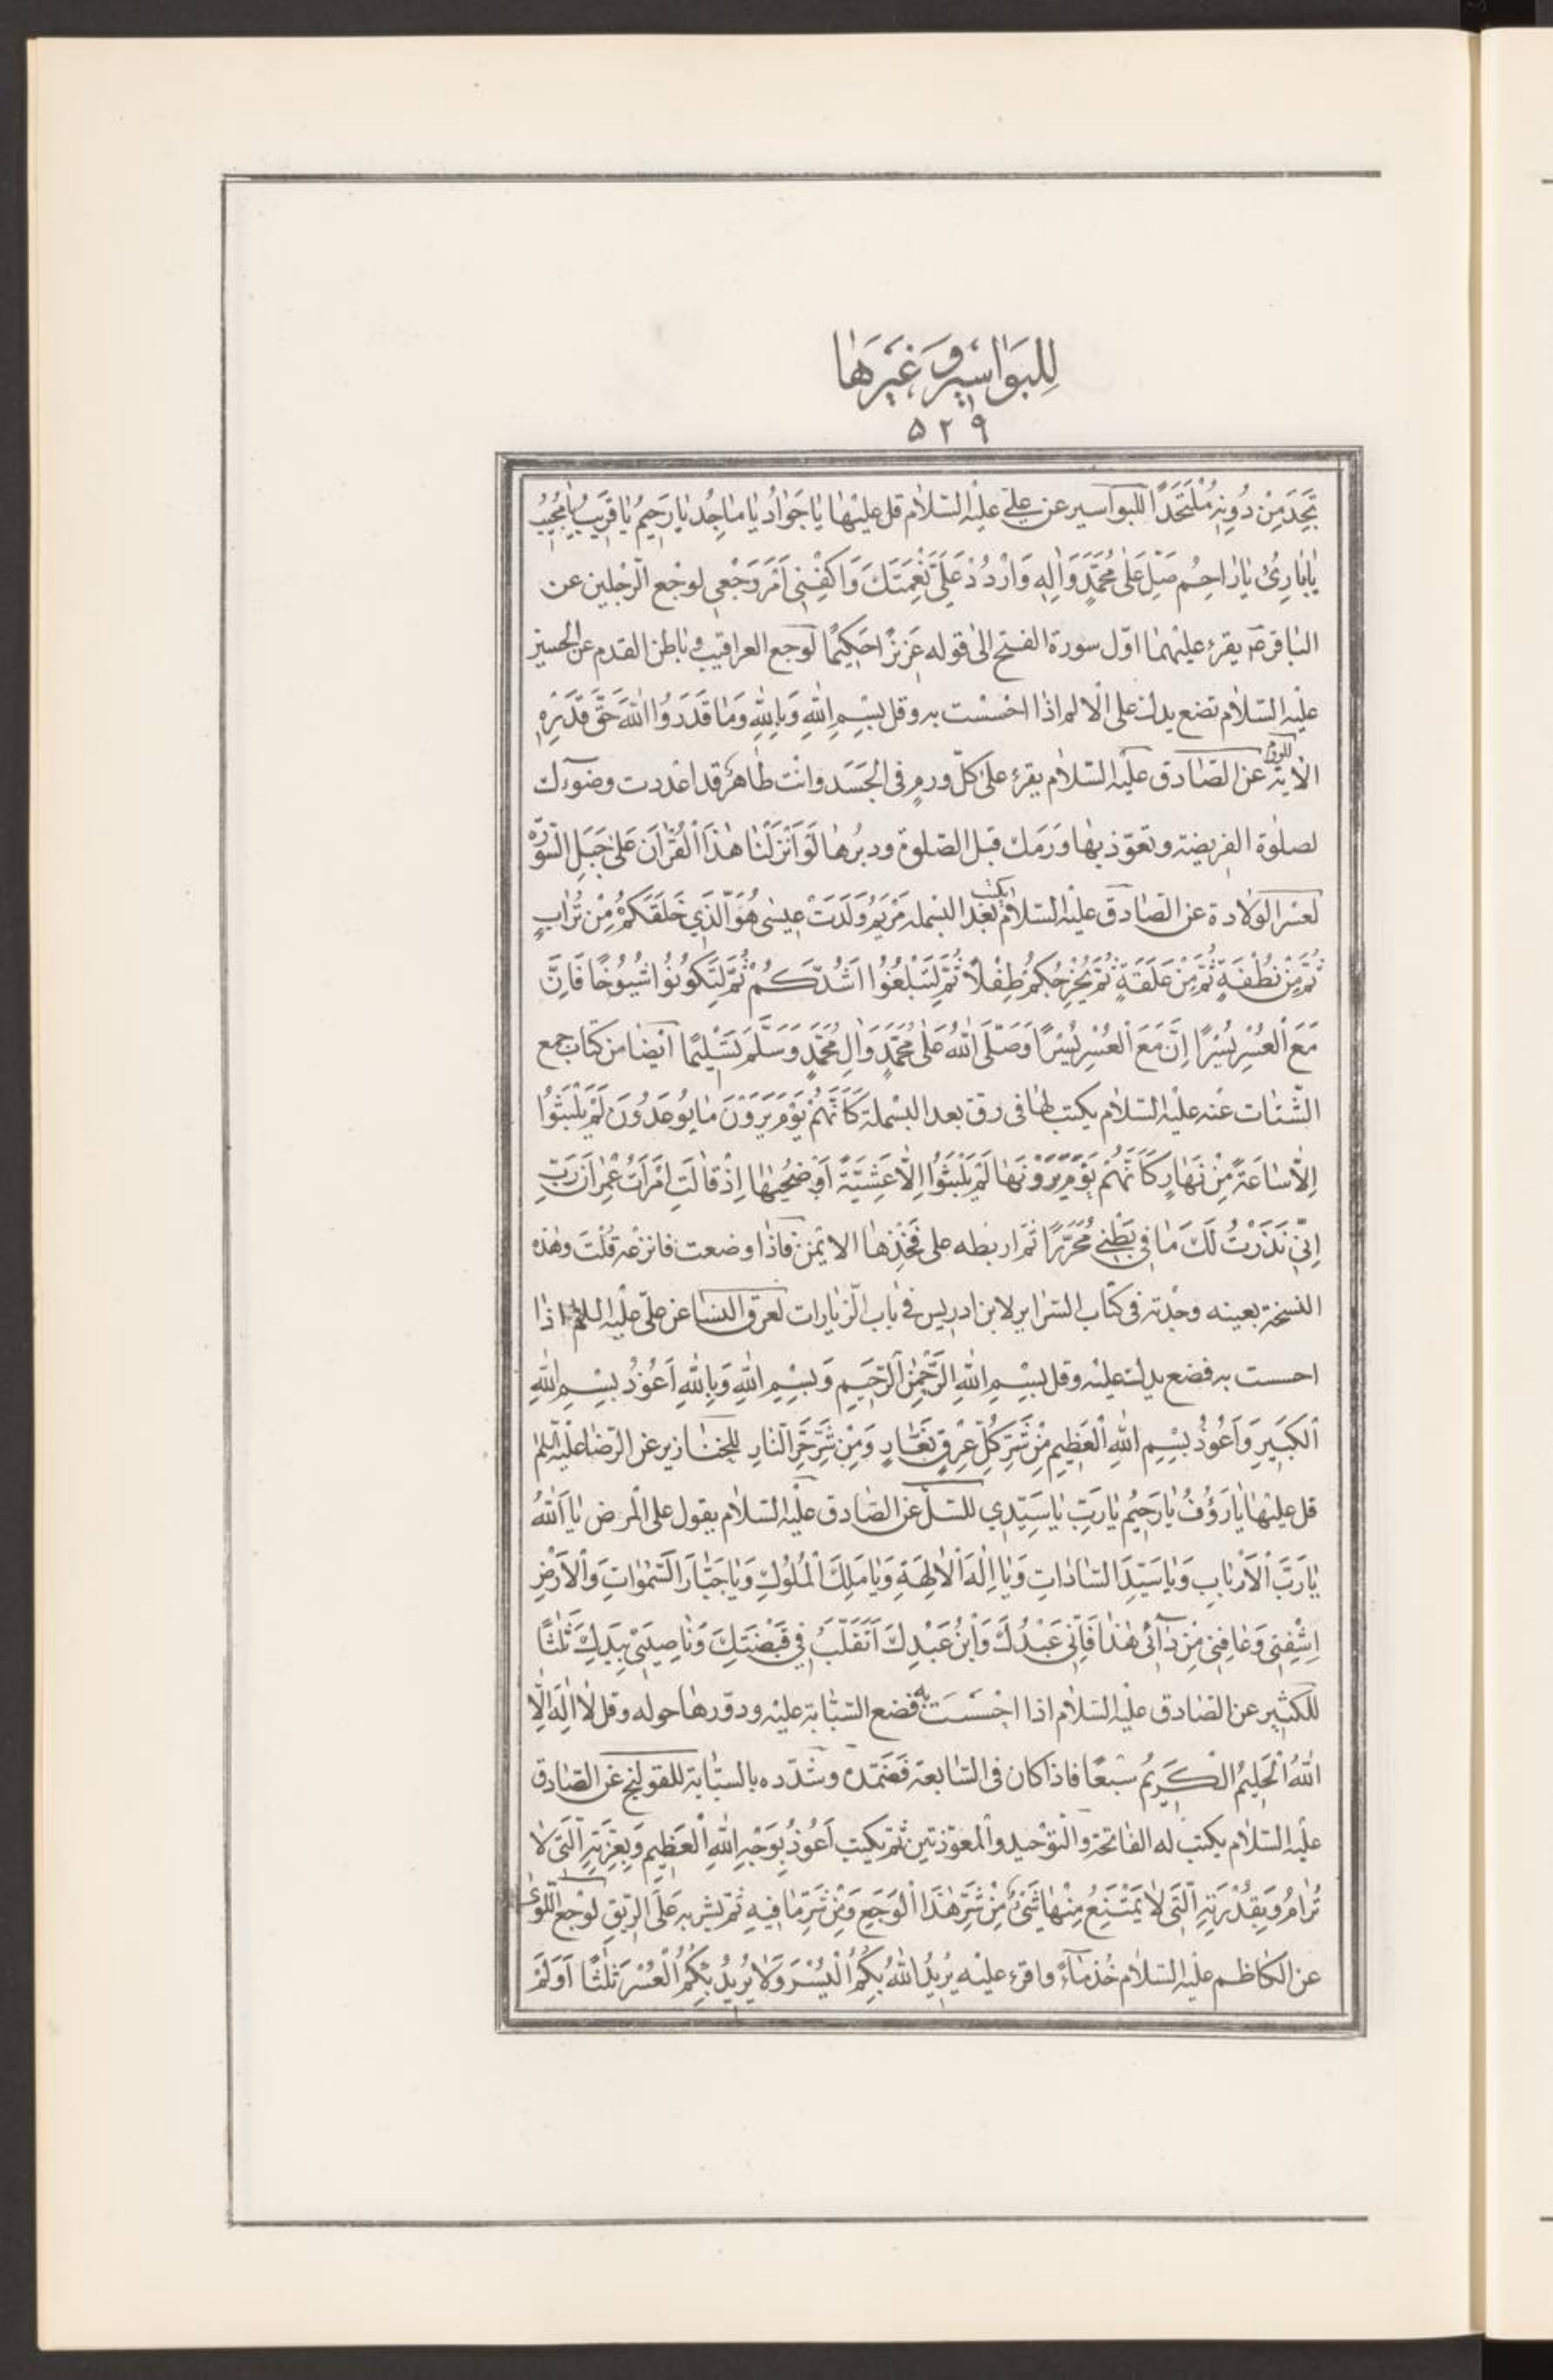 لِلبَوٰاسيرِ وَغَيرِهٰا
٥٢٩
تَجِدَ مِنْ دُونِهِ مُلْتَحَدًا للبواسير عن علي عليه السّلام قل عليها يٰا جَوٰادُ يٰا مٰاجِدُ يٰا رَحِيمُ يٰا قَرِيبُ يٰا مُجِيبُ
يٰا بٰارِئُ يٰا رٰاحِمُ صَلِّ عَلىٰ مُحَمَّدٍ وَاٰلِهِ وَارْدُدْ عَلَيَّ نِعْمَتَكَ وَاكْفِنِي اَمْرَ وَجَعِي لوجع الرّجلين عن
الباقر ع يقرء عليهما اوّل سورة الفتح الى قوله عَزِيزًا حَكِيمًا لوجع العراقيب وباطن القدم عن الحسين
عليه السّلام تضع يدك على الالم اذا احسست به وقل بِسْمِ اللهِ وَبِاللهِ وَمٰا قَدَرُوا اللهَ حَقَّ قَدْرِهِ
الاية للورم عن الصّادق عليه السّلام يقرء على كلّ ورم في الجسد وانت طاهر قد اعددت وضوءك
لصلوة الفريضة وتعوّذ بها ورمك قبل الصّلوة ودبرها لَوْ اَنْزَلْنٰا هٰذَا الْقُرْاٰنَ عَلىٰ جَبَلٍ السّورة
لعسر الولادة عن الصّادق عليه السّلام يكتب بعد البسملة مَرْيَمُ وَلَدَتْ عِيسىٰ هُوَ الَّذِي خَلَقَكُمْ مِنْ تُرٰابٍ
ثُمَّ مِنْ نُطْفَةٍ ثُمَّ مِنْ عَلَقَةٍ ثُمَّ يُخْرِجُكُمْ طِفْلًا ثُمَّ لِتَبْلُغُوا اَشُدَّكُمْ ثُمَّ لِتَكُونُوا شُيُوخًا فَاِنَّ
مَعَ الْعُسْرِ يُسْرًا اِنَّ مَعَ الْعُسْرِ يُسْرًا وَصَلَّى اللهُ عَلىٰ مُحَمَّدٍ وَاٰلِ مُحَمَّدٍ وَسَلَّمَ تَسْلِيمًا ايضا من كتاب جمع
الشّتات عنه عليه السّلام يكتب لها في رقّ بعد البسملة كَاَنَّهُمْ يَوْمَ يَرَوْنَ مٰا يُوعَدُونَ لَمْ يَلْبَثُوا
اِلّا سٰاعَةً مِنْ نَهٰارٍ كَاَنَّهُمْ يَوْمَ يَرَوْنَهٰا لَمْ يَلْبَثُوا اِلّا عَشِيَّةً اَوْ ضُحٰيهٰا اِذْ قٰالَتِ امْرَاَتُ عِمْرٰانَ رَبِّ
اِنِّي نَذَرْتُ لَكَ مٰا فِي بَطْنِي مُحَرَّرًا ثم اربطه على فخذها الايمن فاذا وضعت فانزعه قلت وهذه
النسخة بعينه وجدته في كتاب السّراير لابن ادريس في باب الزّيارات لعرق النسا عن علي عليه السلم اذا
احسست به فضع يدك عليه وقل بِسْمِ اللهِ الرَّحْمٰنِ الرَّحِيمِ وَبِسْمِ اللهِ وَبِاللهِ اَعُوذُ بِسْمِ اللهِ
الْكَبِيرِ وَاَعُوذُ بِسْمِ اللهِ الْعَظِيمِ مِنْ شَرِّ كُلِّ عِرْقٍ نَعّٰارٍ وَمِنْ شَرِّ حَرِّ النّٰارِ للخنازير عن الرّضا عليه السلم
قل عليها يٰا رَؤُفُ يٰا رَحِيمُ يٰا رَبِّ يٰا سَيِّدِي للسّلّ عن الصّادق عليه السّلام يقول على المرض يٰا اَللهُ
يٰا رَبَّ الْاَرْبٰابِ وَيٰا سَيِّدَ السّٰادٰاتِ وَيٰا اِلٰهَ الْاٰلِهَةِ وَيٰا مَلِكَ الْمُلُوكِ وَيٰا جَبّٰارَ السَّمٰوٰاتِ وَالْاَرْضِ
اِشْفِنِي وَعٰافِنِي مِنْ دٰائِي هٰذٰا فَاِنِّي عَبْدُكَ وَابْنُ عَبْدِكَ اَتَقَلَّبُ فِي قَبْضَتِكَ وَنٰاصِيَتِي بِيَدِكَ ثَلٰثًا
للكثير عن الصّادق عليه السّلام اذا احسست به فضع السّبّابة عليه ودوّرها حوله وقل لٰا اِلٰهَ اِلَّا
اللهُ الْحَلِيمُ الْكَرِيمُ سبعًا فاذا كان في السّابعة فضمّده وشدّده بالسبّابة للقولنج عن الصّادق
عليه السّلام يكتب له الفاتحة والتوحيد والمعوّذتين ثمّ يكتب اَعُوذُ بِوَجْهِ اللهِ الْعَظِيمِ وَبِعِزَّتِهِ الَّتِي لٰا
تُرٰامُ وَبِقُدْرَتِهِ الَّتِي لٰا يَمْتَنِعُ مِنْهٰا شَيْءٌ مِنْ شَرِّ هٰذَا الْوَجَعِ وَمِنْ شَرِّ مٰا فِيهِ ثمّ يشربه على الرّيق لوجع اللّوى
عن الكاظم عليه السّلام خذ ماءً واقرء عليه يُرِيدُ اللهُ بِكُمُ الْيُسْرَ وَلٰا يُرِيدُ بِكُمُ الْعُسْرَ ثَلٰثًا اَوَلَمْ